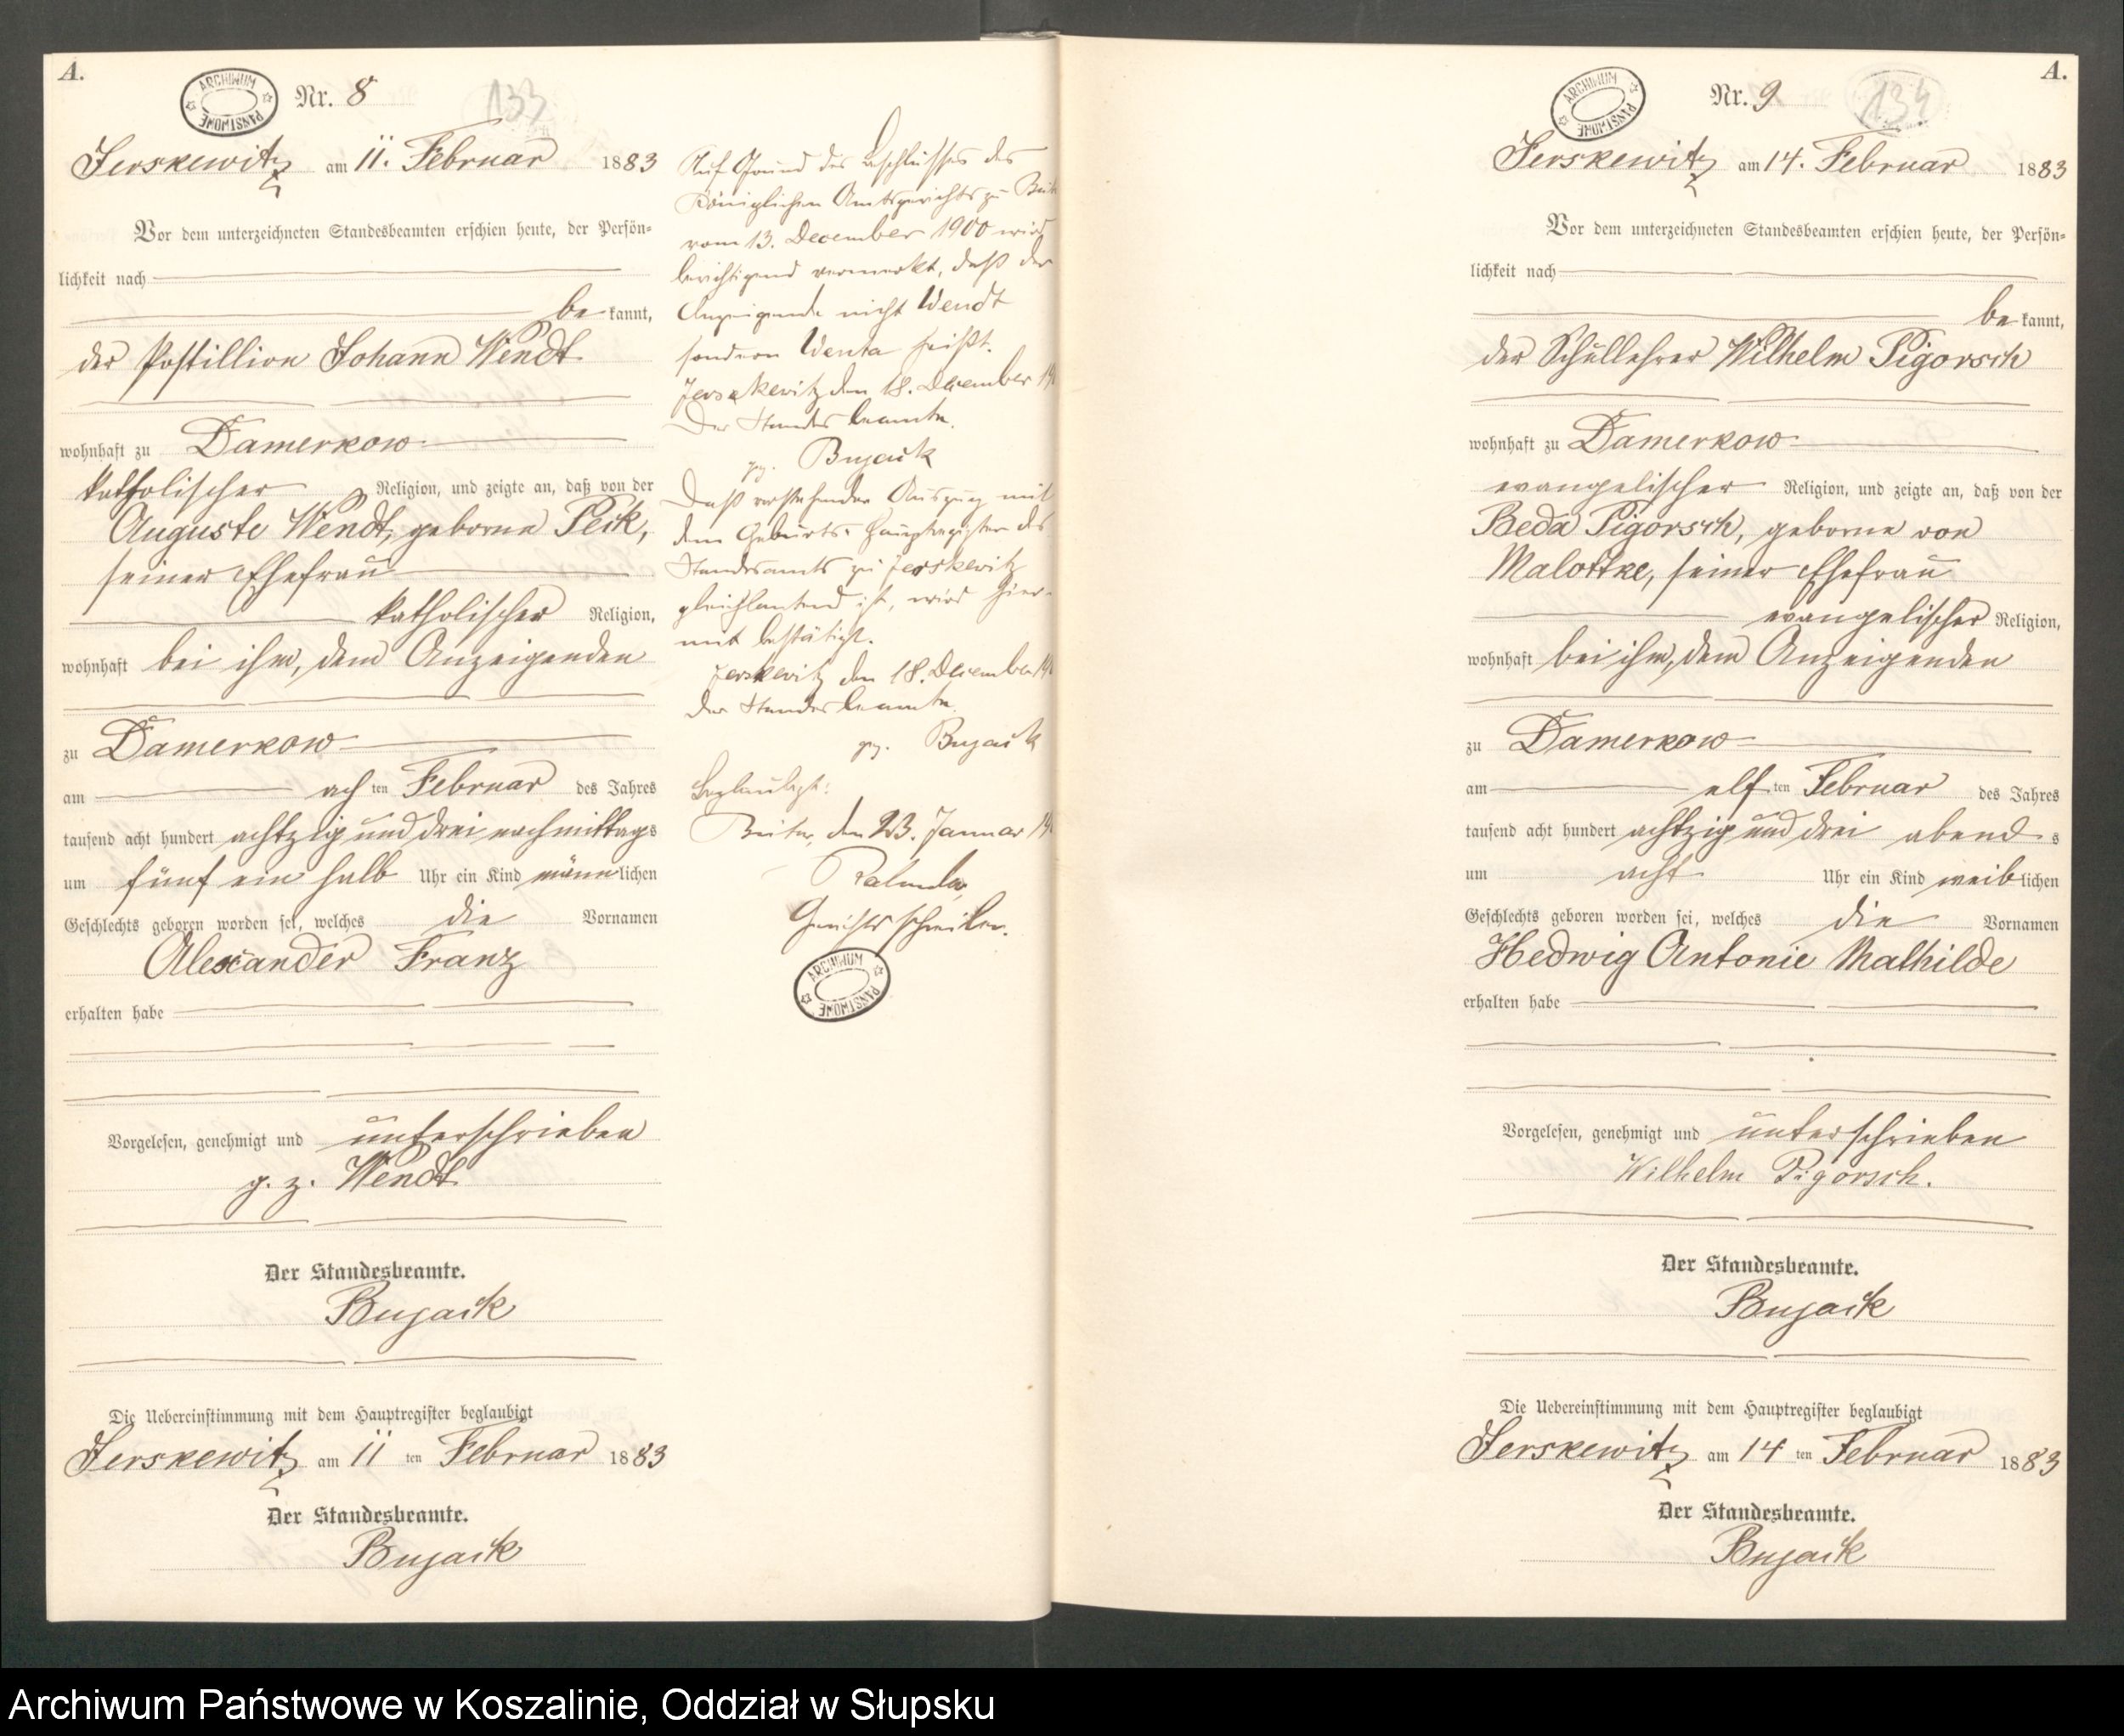 A.
ARCHIWUM PAŃSTWOWE
Nr. 8
133
Jerskewitz am 11. Februar 1883
Vor dem unterzeichneten Standesbeamten erschien heute, der Persön-
lichkeit nach
be kannt,
der Postillion Johann Wendt
wohnhaft zu Damerkow
katholischer Religion, und zeigte an, daß von der
Auguste Wendt, geborne Peik,
seiner Ehefrau
katholischer Religion,
wohnhaft bei ihm, dem Anzeigenden
zu Damerkow
am ach ten Februar des Jahres
tausend acht hundert achtzig und drei nachmittags
um fünf ein halb Uhr ein Kind männlichen
Geschlechts geboren worden sei, welches die Vornamen
Alexander Franz
erhalten habe
Vorgelesen, genehmigt und unterschrieben
g. z. Wendt
Der Standesbeamte.
Bujack
Die Uebereinstimmung mit dem Hauptregister beglaubigt
Jerskewitz am 11 ten Februar 1883
Der Standesbeamte.
Bujack
Auf Grund des Beschlusses des
Königlichen Amtsgerichts zu
vom 13. December 1900 wird
berichtigend vermerkt, daß der
Anzeigende nicht Wendt
sondern Wenta heißt.
Jerskewitz den 18. December
Der Standesbeamte.
gz. Bujack
Daß vorstehender Auszug mit
dem Geburts-Hauptregister des
Standesamts zu Jerskewitz
gleichlautend ist, wird hier-
mit bestätigt.
Jerskewitz den 18. December
Der Standesbeamte.
gz. Bujack
Beglaubigt:
den 23. Januar
Gerichtsschreiber.
ARCHIWUM PAŃSTWOWE
A.
ARCHIWUM PAŃSTWOWE
Nr. 9
134
Jerskewitz am 14. Februar 1883
Vor dem unterzeichneten Standesbeamten erschien heute, der Persön-
lichkeit nach
be kannt,
der Schullehrer Wilhelm Pigorsch
wohnhaft zu Damerkow
evangelischer Religion, und zeigte an, daß von der
Beda Pigorsch, geborne von
Malottke, seiner Ehefrau
evangelischer Religion,
wohnhaft bei ihm, dem Anzeigenden
zu Damerkow
am elf ten Februar des Jahres
tausend acht hundert achtzig und drei abend s
um acht Uhr ein Kind weiblichen
Geschlechts geboren worden sei, welches die Vornamen
Hedwig Antonie Mathilde
erhalten habe
Vorgelesen, genehmigt und unterschrieben
Wilhelm Pigorsch.
Der Standesbeamte.
Bujack
Die Uebereinstimmung mit dem Hauptregister beglaubigt
Jerskewitz am 14 ten Februar 1883
Der Standesbeamte.
Bujack
Archiwum Państwowe w Koszalinie, Oddział w Słupsku